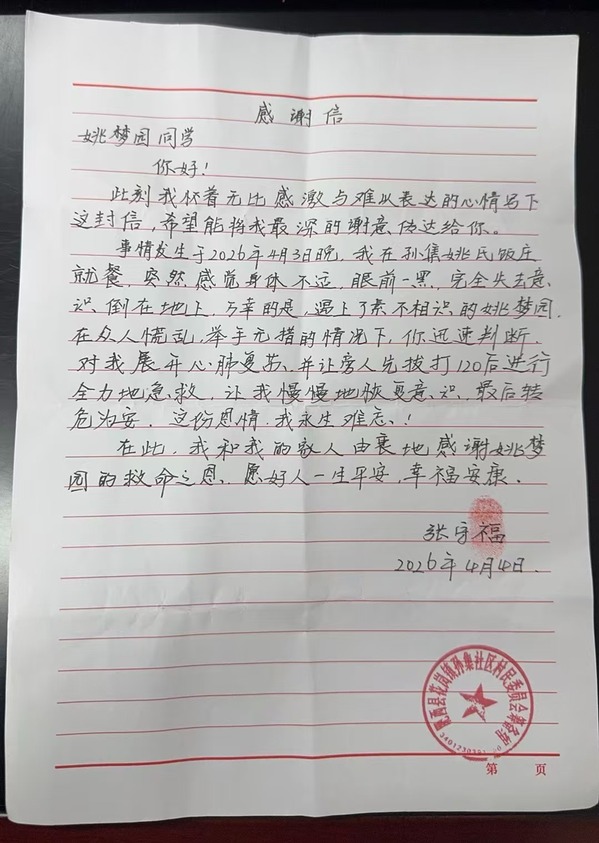 感谢信
姚梦园同学
你好！
此刻我怀着无比感激与难以表达的心情写下
这封信，希望能将我最深的谢意传达给你。
事情发生于2026年4月3日晚，我在孙集姚氏饭庄
就餐，突然感觉身体不适，眼前一黑，完全失去意
识，倒在地上，万幸的是，遇上了素不相识的姚梦园，
在众人慌乱，举手无措的情况下，你迅速判断，
对我展开心肺复苏、并让旁人先拔打120后进行
全力地急救，让我慢慢地恢复意识，最后转
危为安，这份恩情，我永生难忘！
在此，我和我的家人由衷地感谢姚梦
园的救命之恩、愿好人一生平安，幸福安康．
张守福
2026年4月4日．
肥西县花岗镇孙集社区村民委员会
第 页